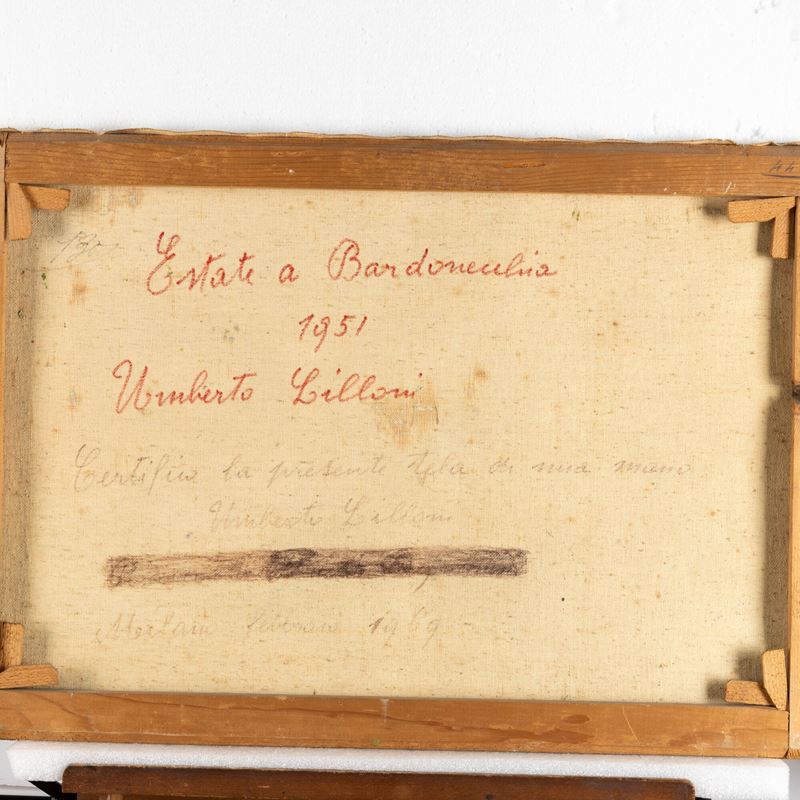 Estate a Bardonecchia
1951
Umberto Lilloni
Certifico la presente tela di mia mano
Umberto Lilloni
Milano 1969